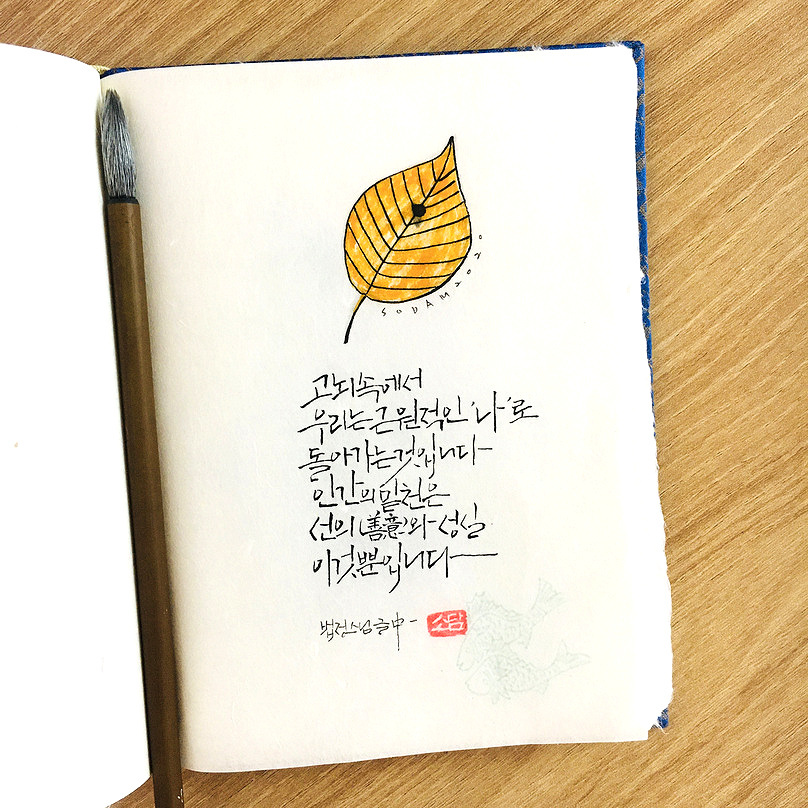 SODAM 2020
고뇌속에서
우리는 근원적인 '나'로
돌아가는것입니다
인간의 밑천은
선의(善意)와 성실
이것뿐입니다
법정스님 글 中 -
소담